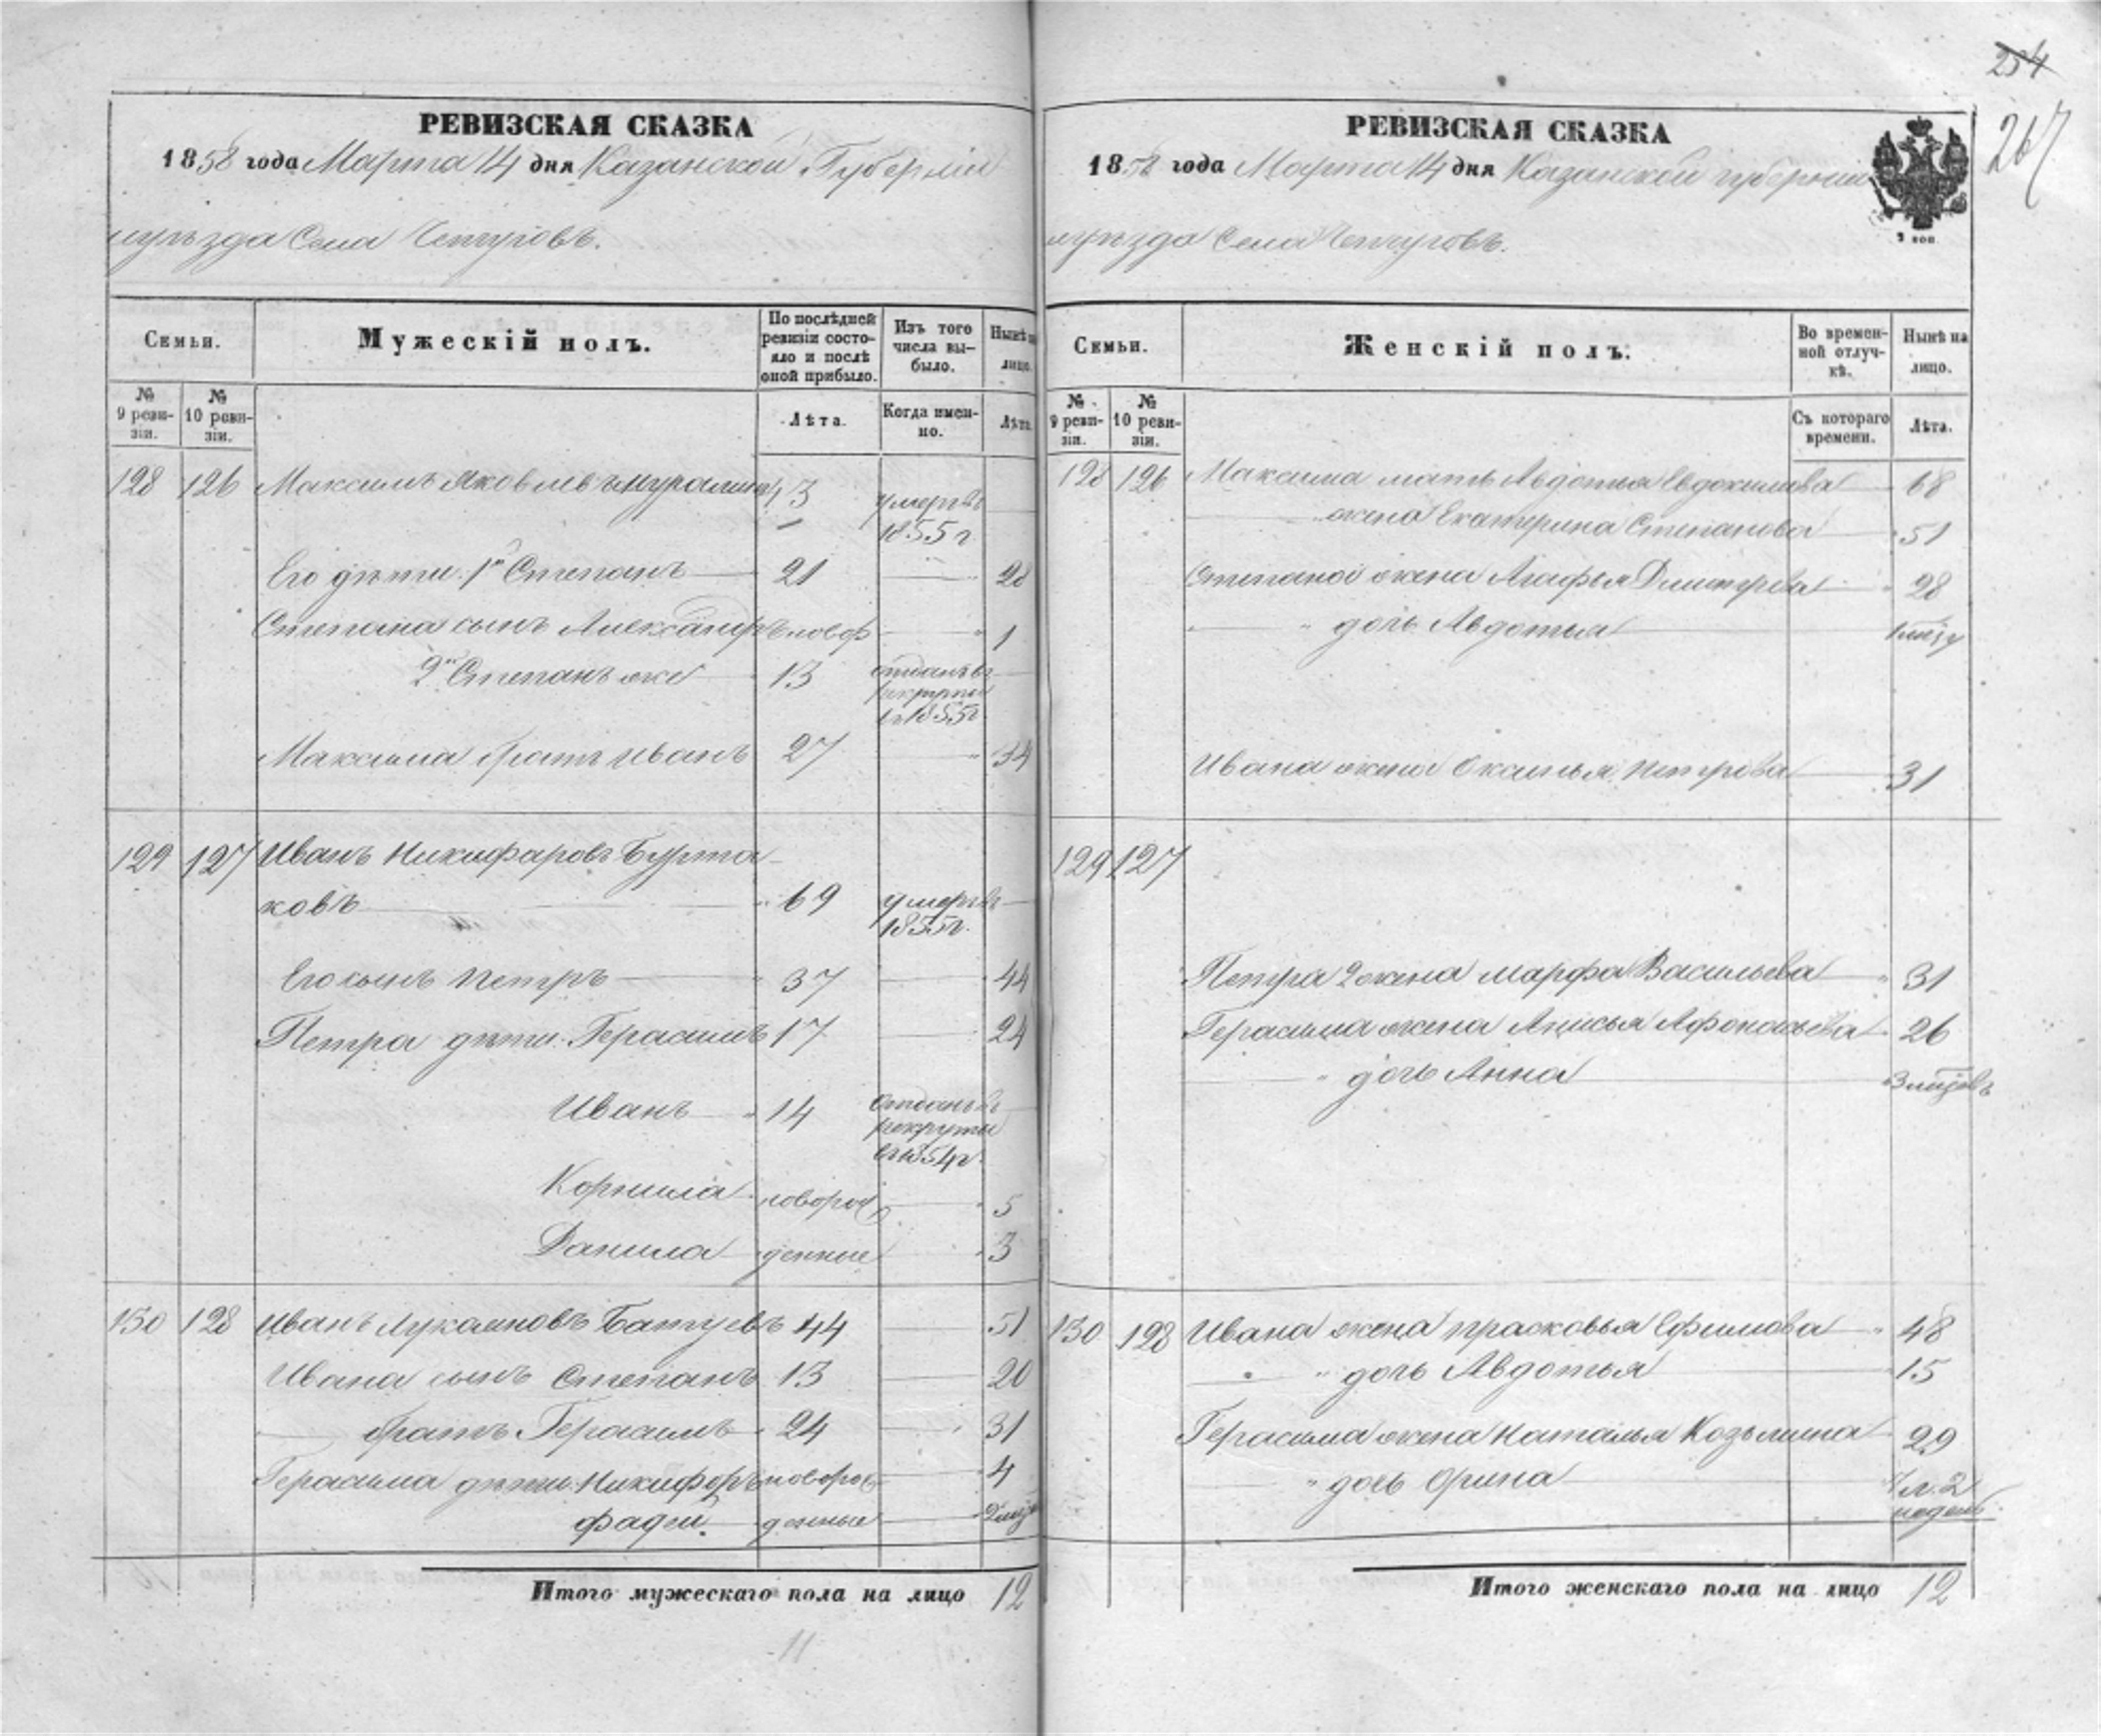 254
267
РЕВИЗСКАЯ СКАЗКА
1858 года Марта 14 дня Казанской Губернiи
уѣзда Села
Семьи.
Мужескій полъ.
По послѣдней ревизіи состояло и послѣ оной прибыло.
Изъ того числа выбыло.
Нынѣ на лицо.
№ 9 ревизіи.
№ 10 ревизіи.
Лѣта.
Когда именно.
Лѣта.
128 126 Максимъ Яковлевъ 43 умеръ въ
1855 г
Его дѣти. 1й Степанъ 21 28
Степана сынъ Александръ новор 1
2й Степанъ же 13 отданъ въ
рекруты
въ 1855г.
Максима братъ Иванъ 27 34
129 127 Иванъ Никифаровъ Бурта-
ковъ 69 умеръ въ
1855г.
Его сынъ Петръ 37 44
Петра дѣти. Герасимъ 17 24
Иванъ 14 отданъ въ
рекруты
въ 1854г.
Корнила новорож 5
Данила денные 3
130 128 Иванъ Лукаяновъ Батуевъ 44 51
Ивана сынъ Степанъ 13 20
братъ Герасимъ 24 31
Герасима дѣти. Никифоръ новорож 4
Фадей. денные
Итого мужескаго пола на лицо 12
11
РЕВИЗСКАЯ СКАЗКА
1858 года Марта 14 дня Казанской губернiи
уѣзда Села
Семьи.
Женскій полъ.
Во временной отлучкѣ.
Нынѣ на лицо.
№ 9 ревизіи.
№ 10 ревизіи.
Съ котораго времени.
Лѣта.
128 126 Максима мать Авдотья Евдокимова 68
жена Екатерина Степанова 51
Степана жена Агафья Дмитрева 28
дочь Авдотья
Ивана жена Оксинья Петрова 31
129 127
Петра 2 жена Марфа Васильева 31
Герасима жена Анисья Афонасьева 26
дочь Анна
130 128 Ивана жена Прасковья Ефимова 48
дочь Авдотья 15
Герасима жена Наталья Козьмина 29
дочь Орина
недель
Итого женскаго пола на лицо 12